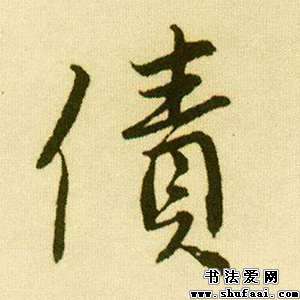 債
书法爱网
www.shufaai.com